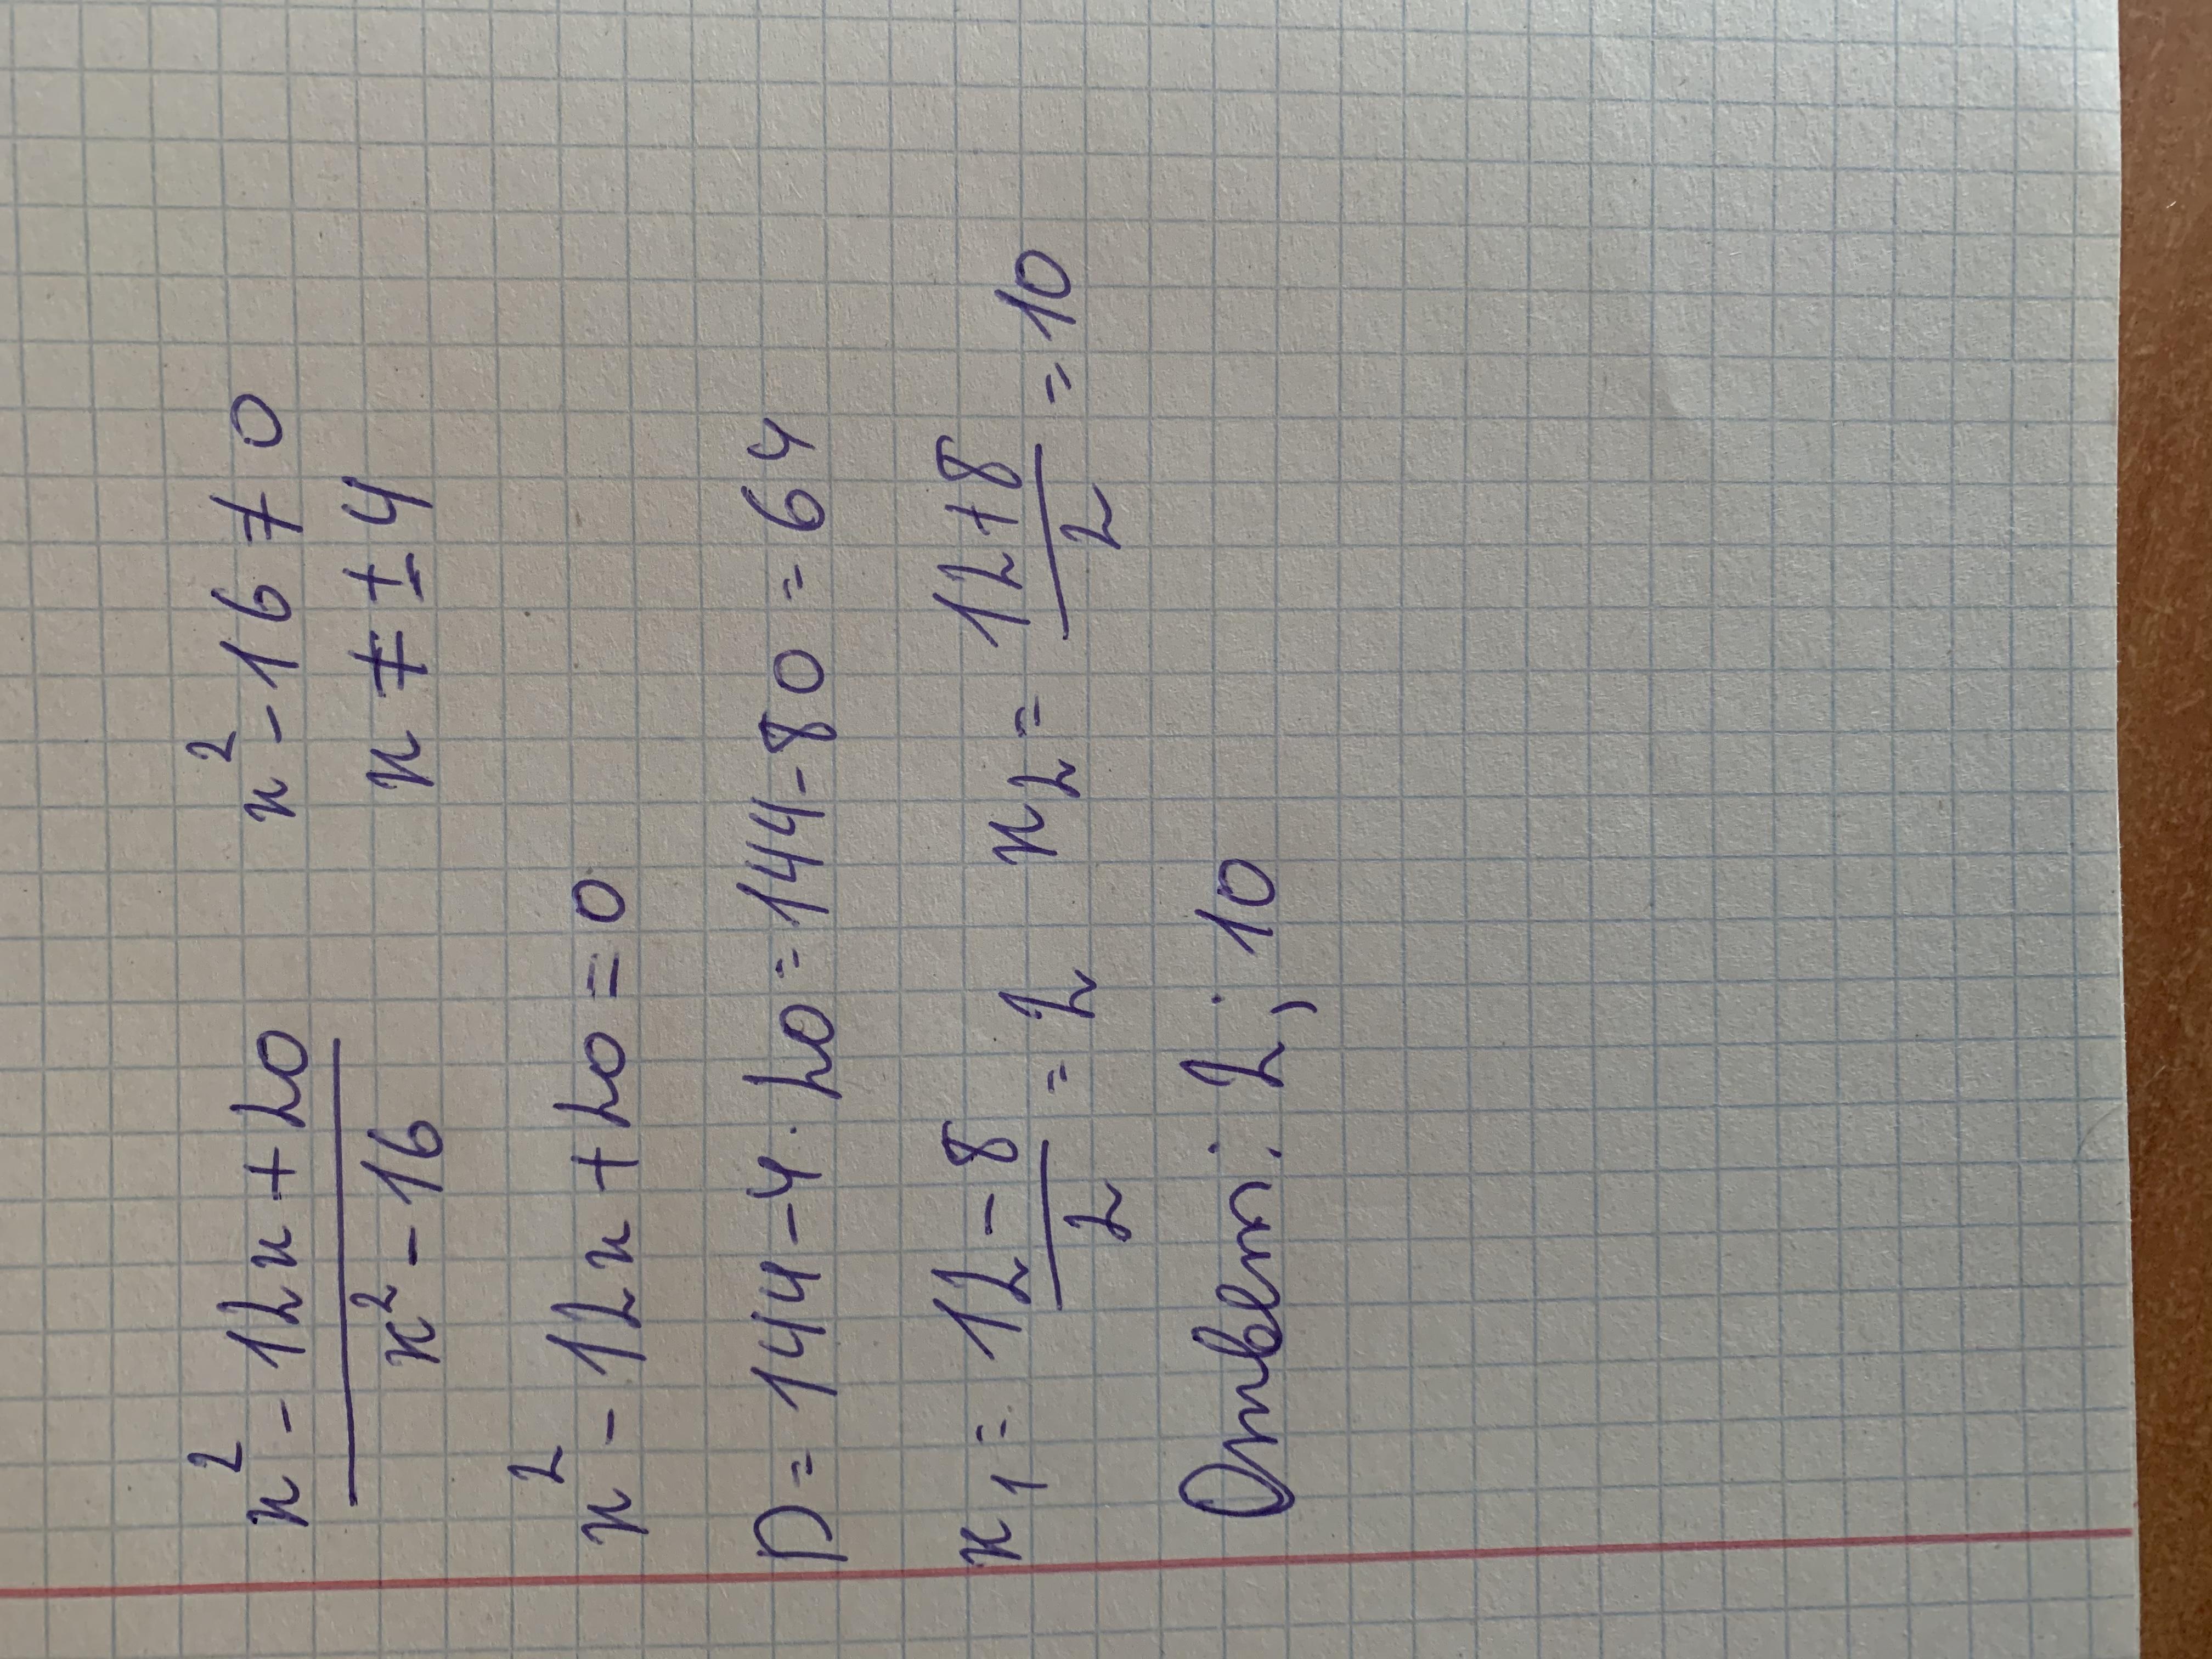 x² - 12x + 20 / x² - 16    x² - 16 ≠ 0
x ≠ ± 4
x² - 12x + 20 = 0
D = 144 - 4 · 20 = 144 - 80 = 64
x₁ = 12 - 8 / 2 = 2    x₂ = 12 + 8 / 2 = 10
Ответ: 2; 10